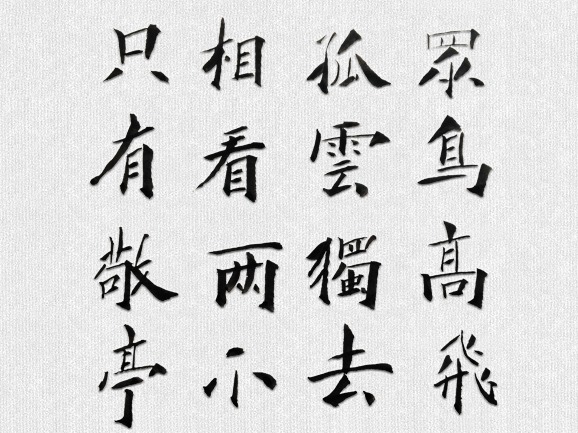 眾鳥高飛
孤雲獨去
相看两不
只有敬亭